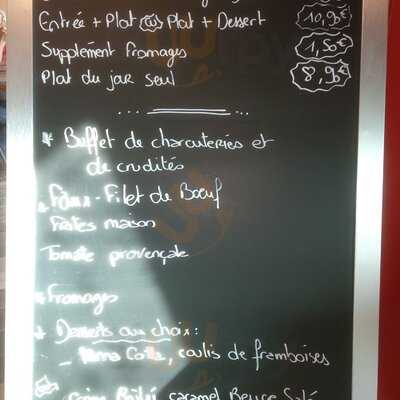 Entrée + Plat ou Plat + Dessert 10,90€
Supplément Fromages 1,50€
Plat du jour seul 8,90€
* Buffet de charcuteries et
de crudités
* Faux-Filet de Boeuf
Frites maison
Tomate provençale
* Fromages
* Desserts au choix :
- Panna Cotta, coulis de framboises
caramel Beurre Salé